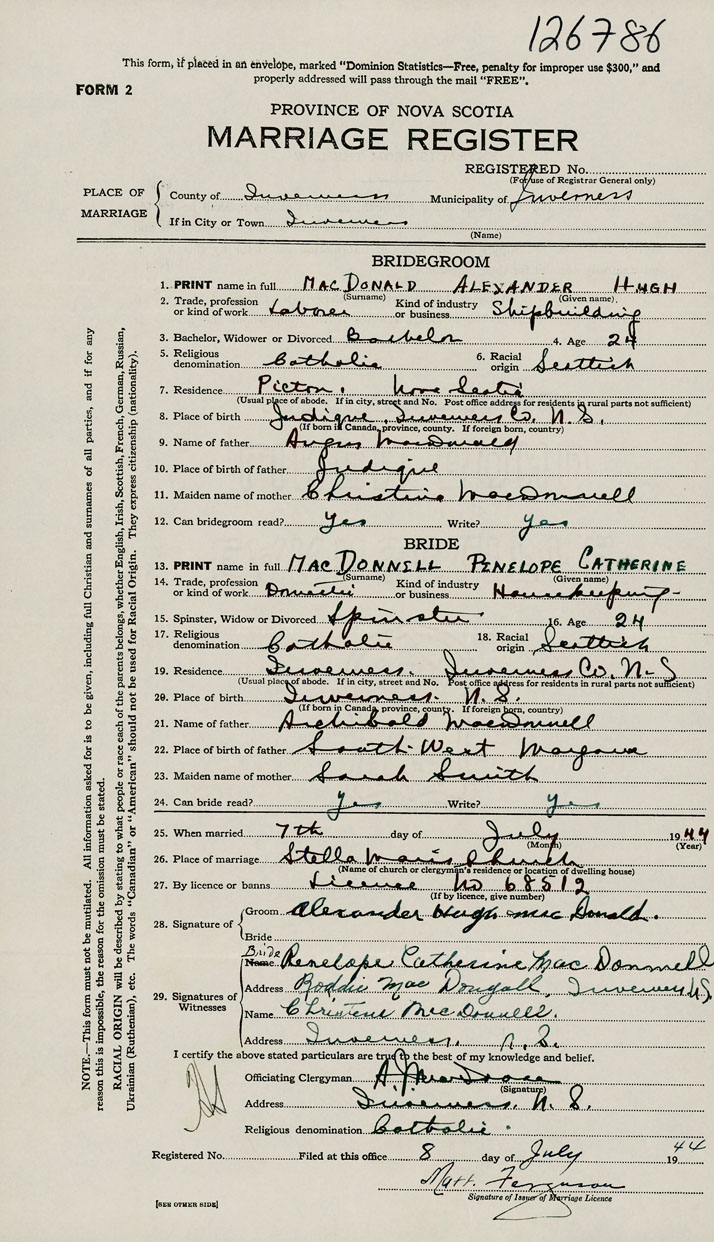 126786
This form, if placed in an envelope, marked "Dominion Statistics—Free, penalty for improper use $300," and
properly addressed will pass through the mail "FREE".
FORM 2
PROVINCE OF NOVA SCOTIA
MARRIAGE REGISTER
REGISTERED No.
(For use of Registrar General only)
PLACE OF MARRIAGE
County of Inverness Municipality of Inverness
If in City or Town Inverness
(Name)
BRIDEGROOM
1. PRINT name in full MACDONALD ALEXANDER HUGH
(Surname) (Given name)
2. Trade, profession or kind of work Laborer Kind of industry or business Shipbuilding
3. Bachelor, Widower or Divorced Bachelor 4. Age 24
5. Religious denomination Catholic 6. Racial origin Scottish
7. Residence Pictou, Nova Scotia
(Usual place of abode. If in city, street and No. Post office address for residents in rural parts not sufficient)
8. Place of birth Judique, Inverness Co. N.S.
(If born in Canada, province, county. If foreign born, country)
9. Name of father Angus MacDonald
10. Place of birth of father Judique
11. Maiden name of mother Christina MacDonnell
12. Can bridegroom read? Yes Write? Yes
BRIDE
13. PRINT name in full MACDONNELL PENELOPE CATHERINE
(Surname) (Given name)
14. Trade, profession or kind of work Domestic Kind of industry or business Housekeeping
15. Spinster, Widow or Divorced Spinster 16. Age 24
17. Religious denomination Catholic 18. Racial origin Scottish
19. Residence Inverness. Inverness Co. N.S
(Usual place of abode. If in city, street and No. Post office address for residents in rural parts not sufficient)
20. Place of birth Inverness. N.S.
(If born in Canada, province, county. If foreign born, country)
21. Name of father Archibald MacDonnell
22. Place of birth of father South West Margaree
23. Maiden name of mother Sarah Smith
24. Can bride read? Yes Write? Yes
25. When married 7th day of July 1944
(Month) (Year)
26. Place of marriage Stella Maris Church
(Name of church or clergyman's residence or location of dwelling house)
27. By licence or banns Licence No 68512
(If by licence, give number)
28. Signature of
Groom Alexander Hugh MacDonald.
Bride
Bride
Name Penelope Catherine MacDonnell
29. Signatures of Witnesses
Address Roddie MacDougall, Inverness N.S.
Name Christena MacDonnell.
Address Inverness. N.S.
I certify the above stated particulars are true to the best of my knowledge and belief.
Officiating Clergyman
(Signature)
Address Inverness, N.S.
Religious denomination Catholic.
Registered No. Filed at this office 8 day of July 1944
Matt. Ferguson
Signature of Issuer of Marriage Licence
[SEE OTHER SIDE]
NOTE.—This form must not be mutilated. All information asked for is to be given, including full Christian and surnames of all parties, and if for any
reason this is impossible, the reason for the omission must be stated.
RACIAL ORIGIN will be described by stating to what people or race each of the parents belongs, whether English, Irish, Scottish, French, German, Russian,
Ukrainian (Ruthenian), etc. The words "Canadian" or "American" should not be used for Racial Origin. They express citizenship (nationality).